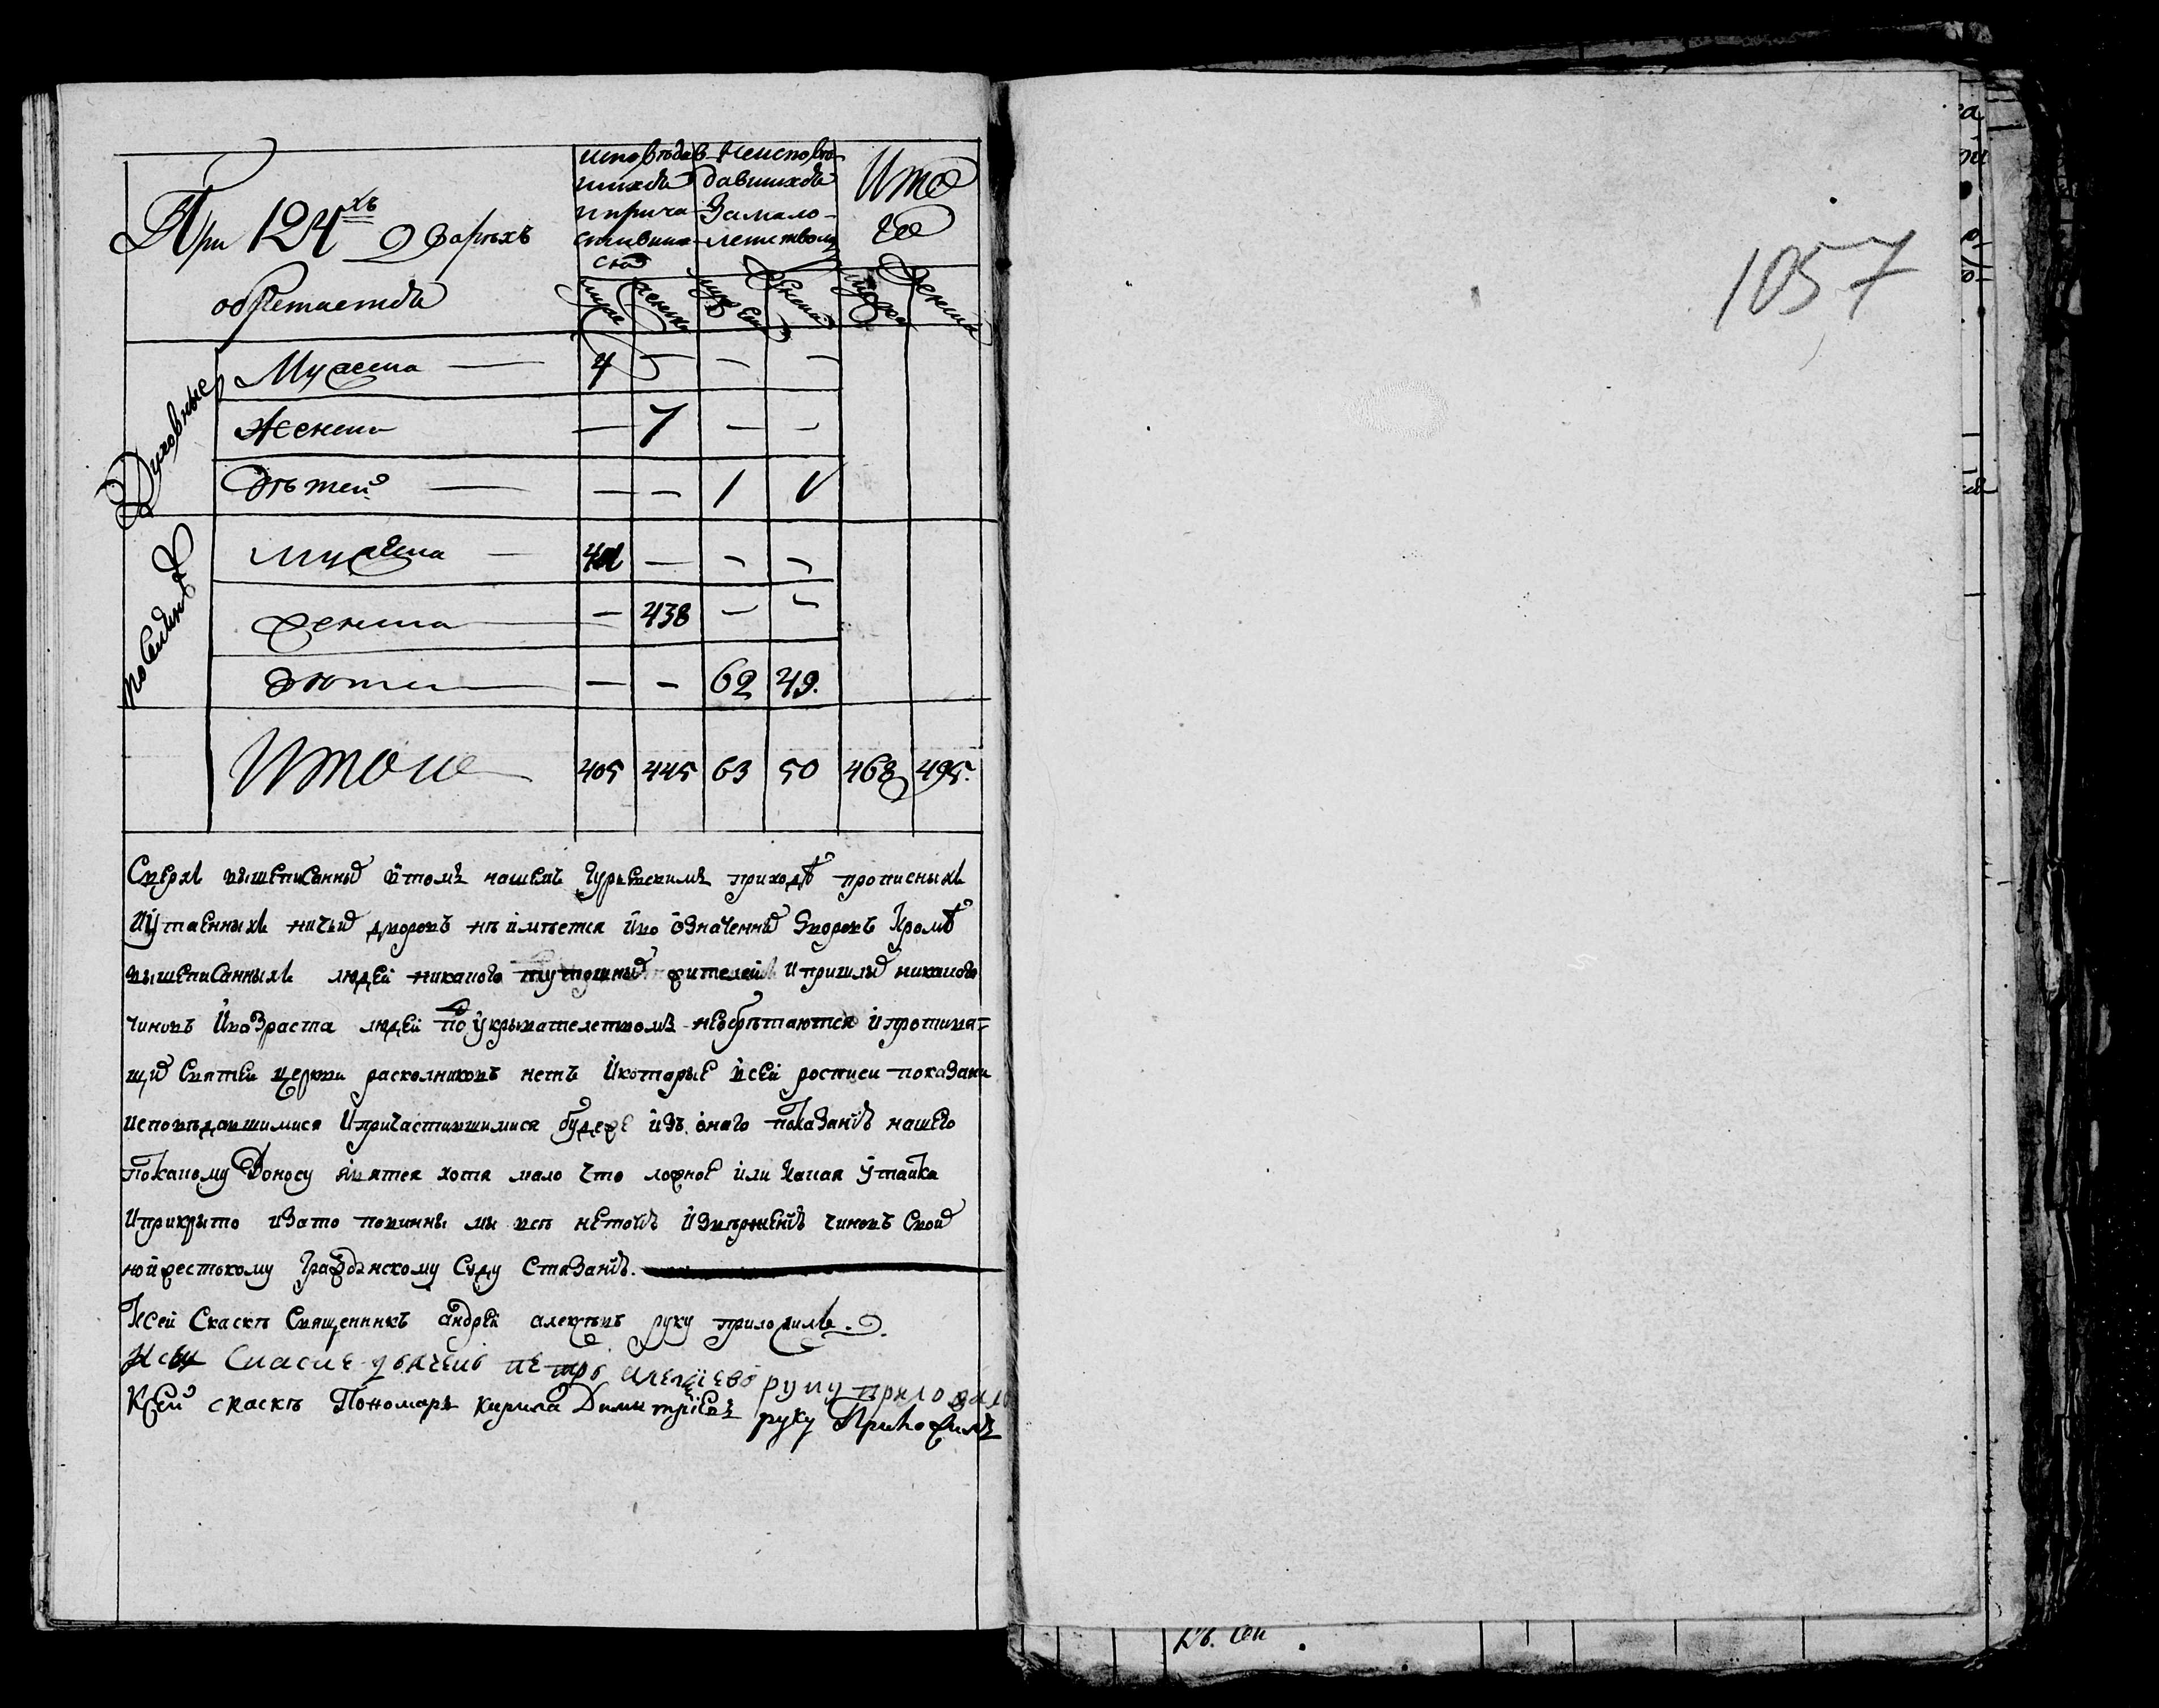 При 124хъ дворехъ
обретаетца
исповедав
шихся
и прича
стивши
ся
Неисповѣ
давшихся
За мало-
летством
Ито
го
мужеска женска мужеска женска мужеска женска
Духовные
Мужеска — 4 — — —
Женска — 7 — —
Дѣтей — — — 1 1
посадцкие
мужеска — 401 — — —
женска — 438 — —
дѣтей — — 62 49.
Итого 405 445 63 50 468 495.
Сверхъ вышеписанныхъ в томъ нашемъ Гурьевскимъ приходѣ прописныхъ
И утаенныхъ ничьих дворовъ не имѣется и во означенных дворовъ кромѣ
вышеписанныхъ людей никакого тутошных жителей и пришлых никакого
чиновъ И возраста людей по укрывателством не обрѣтаются и противя=
щих святей церкви расколниковъ нетъ И которые в сей росписи показани
исповѣдавшимися И причастившимися будеже из онаго показания нашего
по какому доносу явятся хотя мало что ложное или какая утайка
И прикрыто и за то повинны мы все нетокмо извержения чиновъ своих
но и жестокому гражданскому суду стязания.
К сей скаскѣ священникъ андрей алексѣевъ руку приложилъ.
К сей скаске дьячекъ петръ алексіевъ руку приложилъ
К сей скаскѣ Пономарь кирила Димитріевъ руку Приложилъ
1057